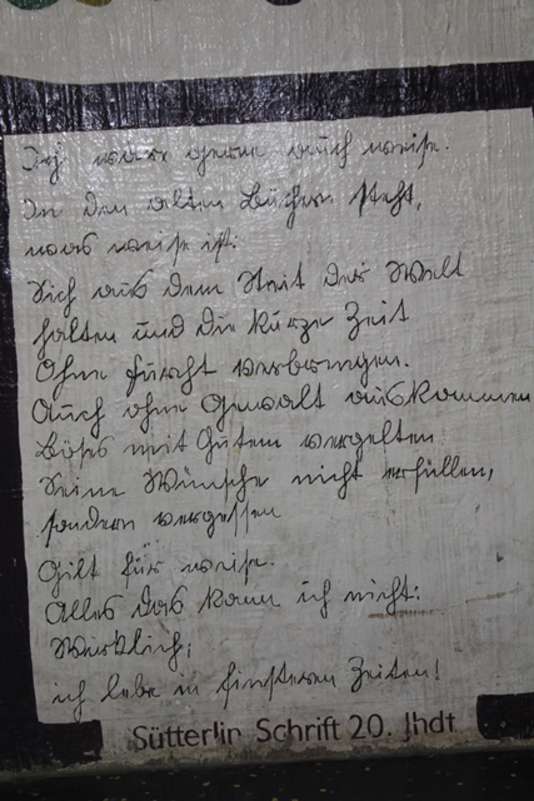 Ich wäre gerne auch weise.
In den alten Büchern steht,
was weise ist:
Sich aus dem Streit der Welt
halten und die kurze Zeit
Ohne Furcht verbringen.
Auch ohne Gewalt auskommen
Böses mit Gutem vergelten
Seine Wünsche nicht erfüllen,
sondern vergessen
Gilt für weise.
Alles das kann ich nicht:
Wirklich,
ich lebe in finsteren Zeiten!
Sütterlin Schrift 20. Jhdt